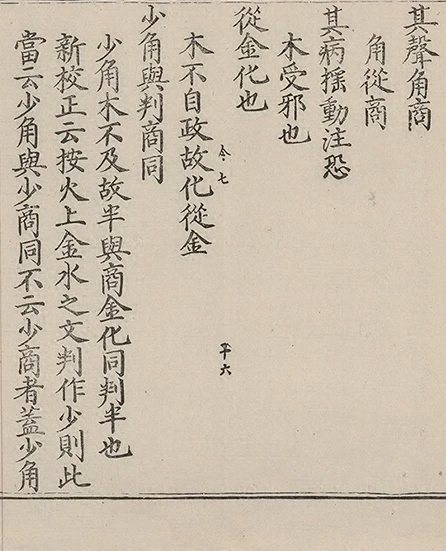 其聲角商
角從商
其病搖動注恐
木受邪也
從金化也
木不自政故化從金
少角與判商同
少角木不及故半與商金化同判半也
新校正云按火上金水之文判作少則此
當云少角與少商同不云少商者蓋少角